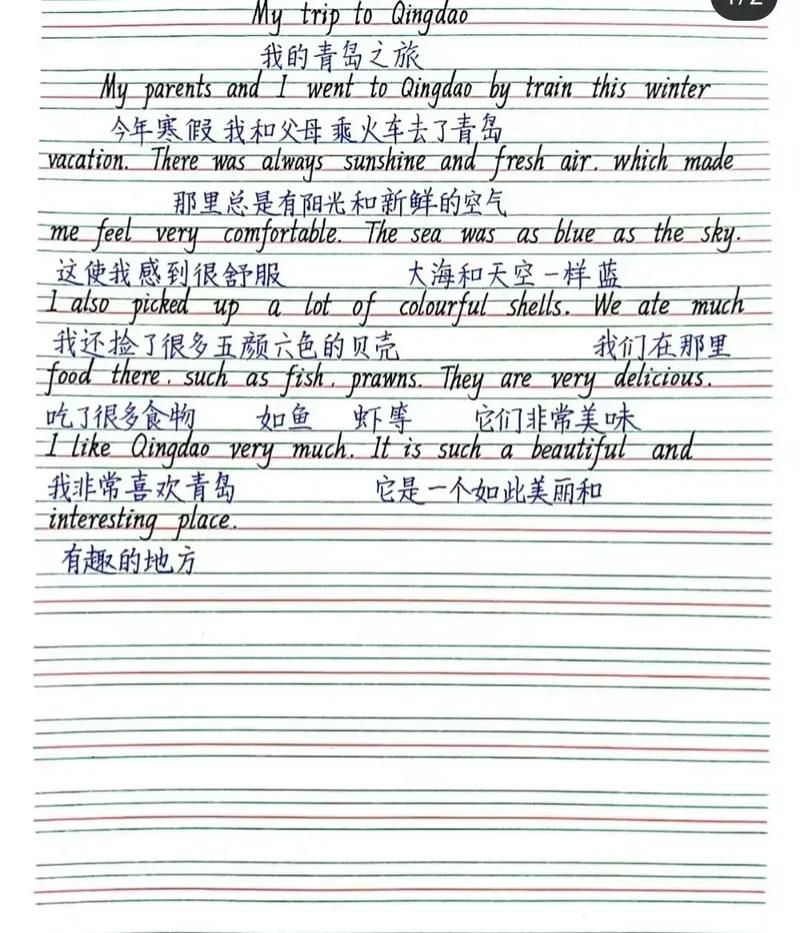 1/2
My trip to Qingdao
我的青岛之旅
My parents and I went to Qingdao by train this winter
今年寒假 我和父母 乘火车去了青岛
vacation. There was always sunshine and fresh air. which made
那里总是有阳光和新鲜的空气
me feel very comfortable. The sea was as blue as the sky.
这使我感到很舒服 大海和天空一样蓝
I also picked up a lot of colourful shells. We ate much
我还捡了很多五颜六色的贝壳 我们在那里
food there. such as fish. prawns. They are very delicious.
吃了很多食物 如鱼 虾等 它们非常美味
I like Qingdao very much. It is such a beautiful and
我非常喜欢青岛 它是一个如此美丽和
interesting place.
有趣的地方